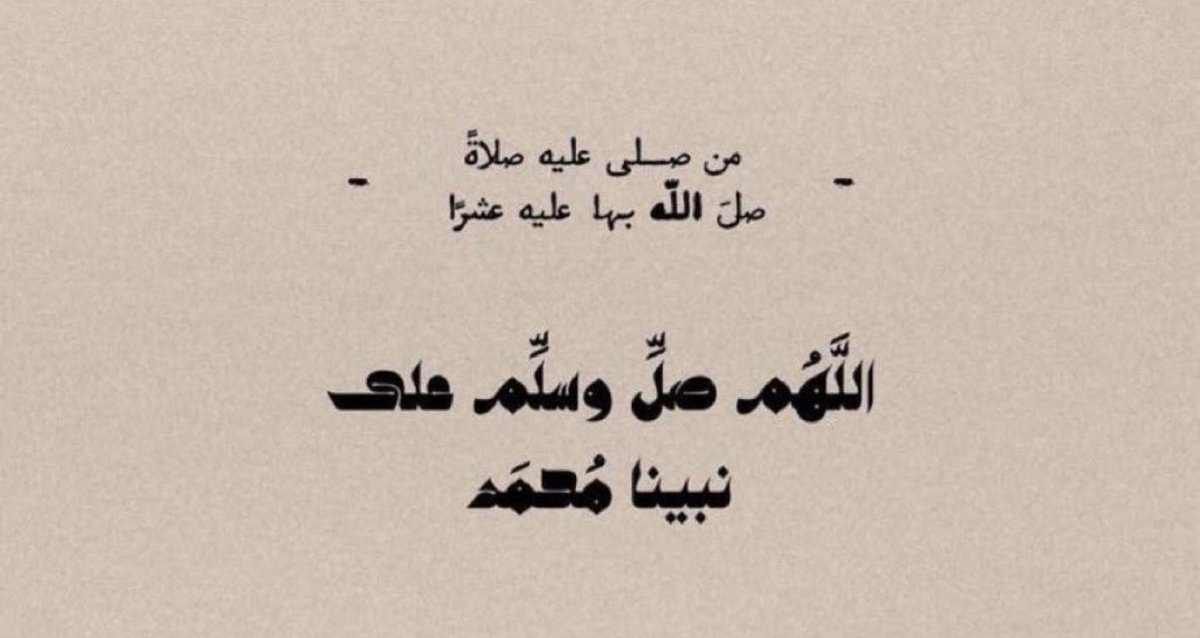 من صلى عليه صلاةً
صلَ اللّه بها عليه عشرًا
اللَّهُم صلِّ وسلِّم على
نبينا مُحمَد